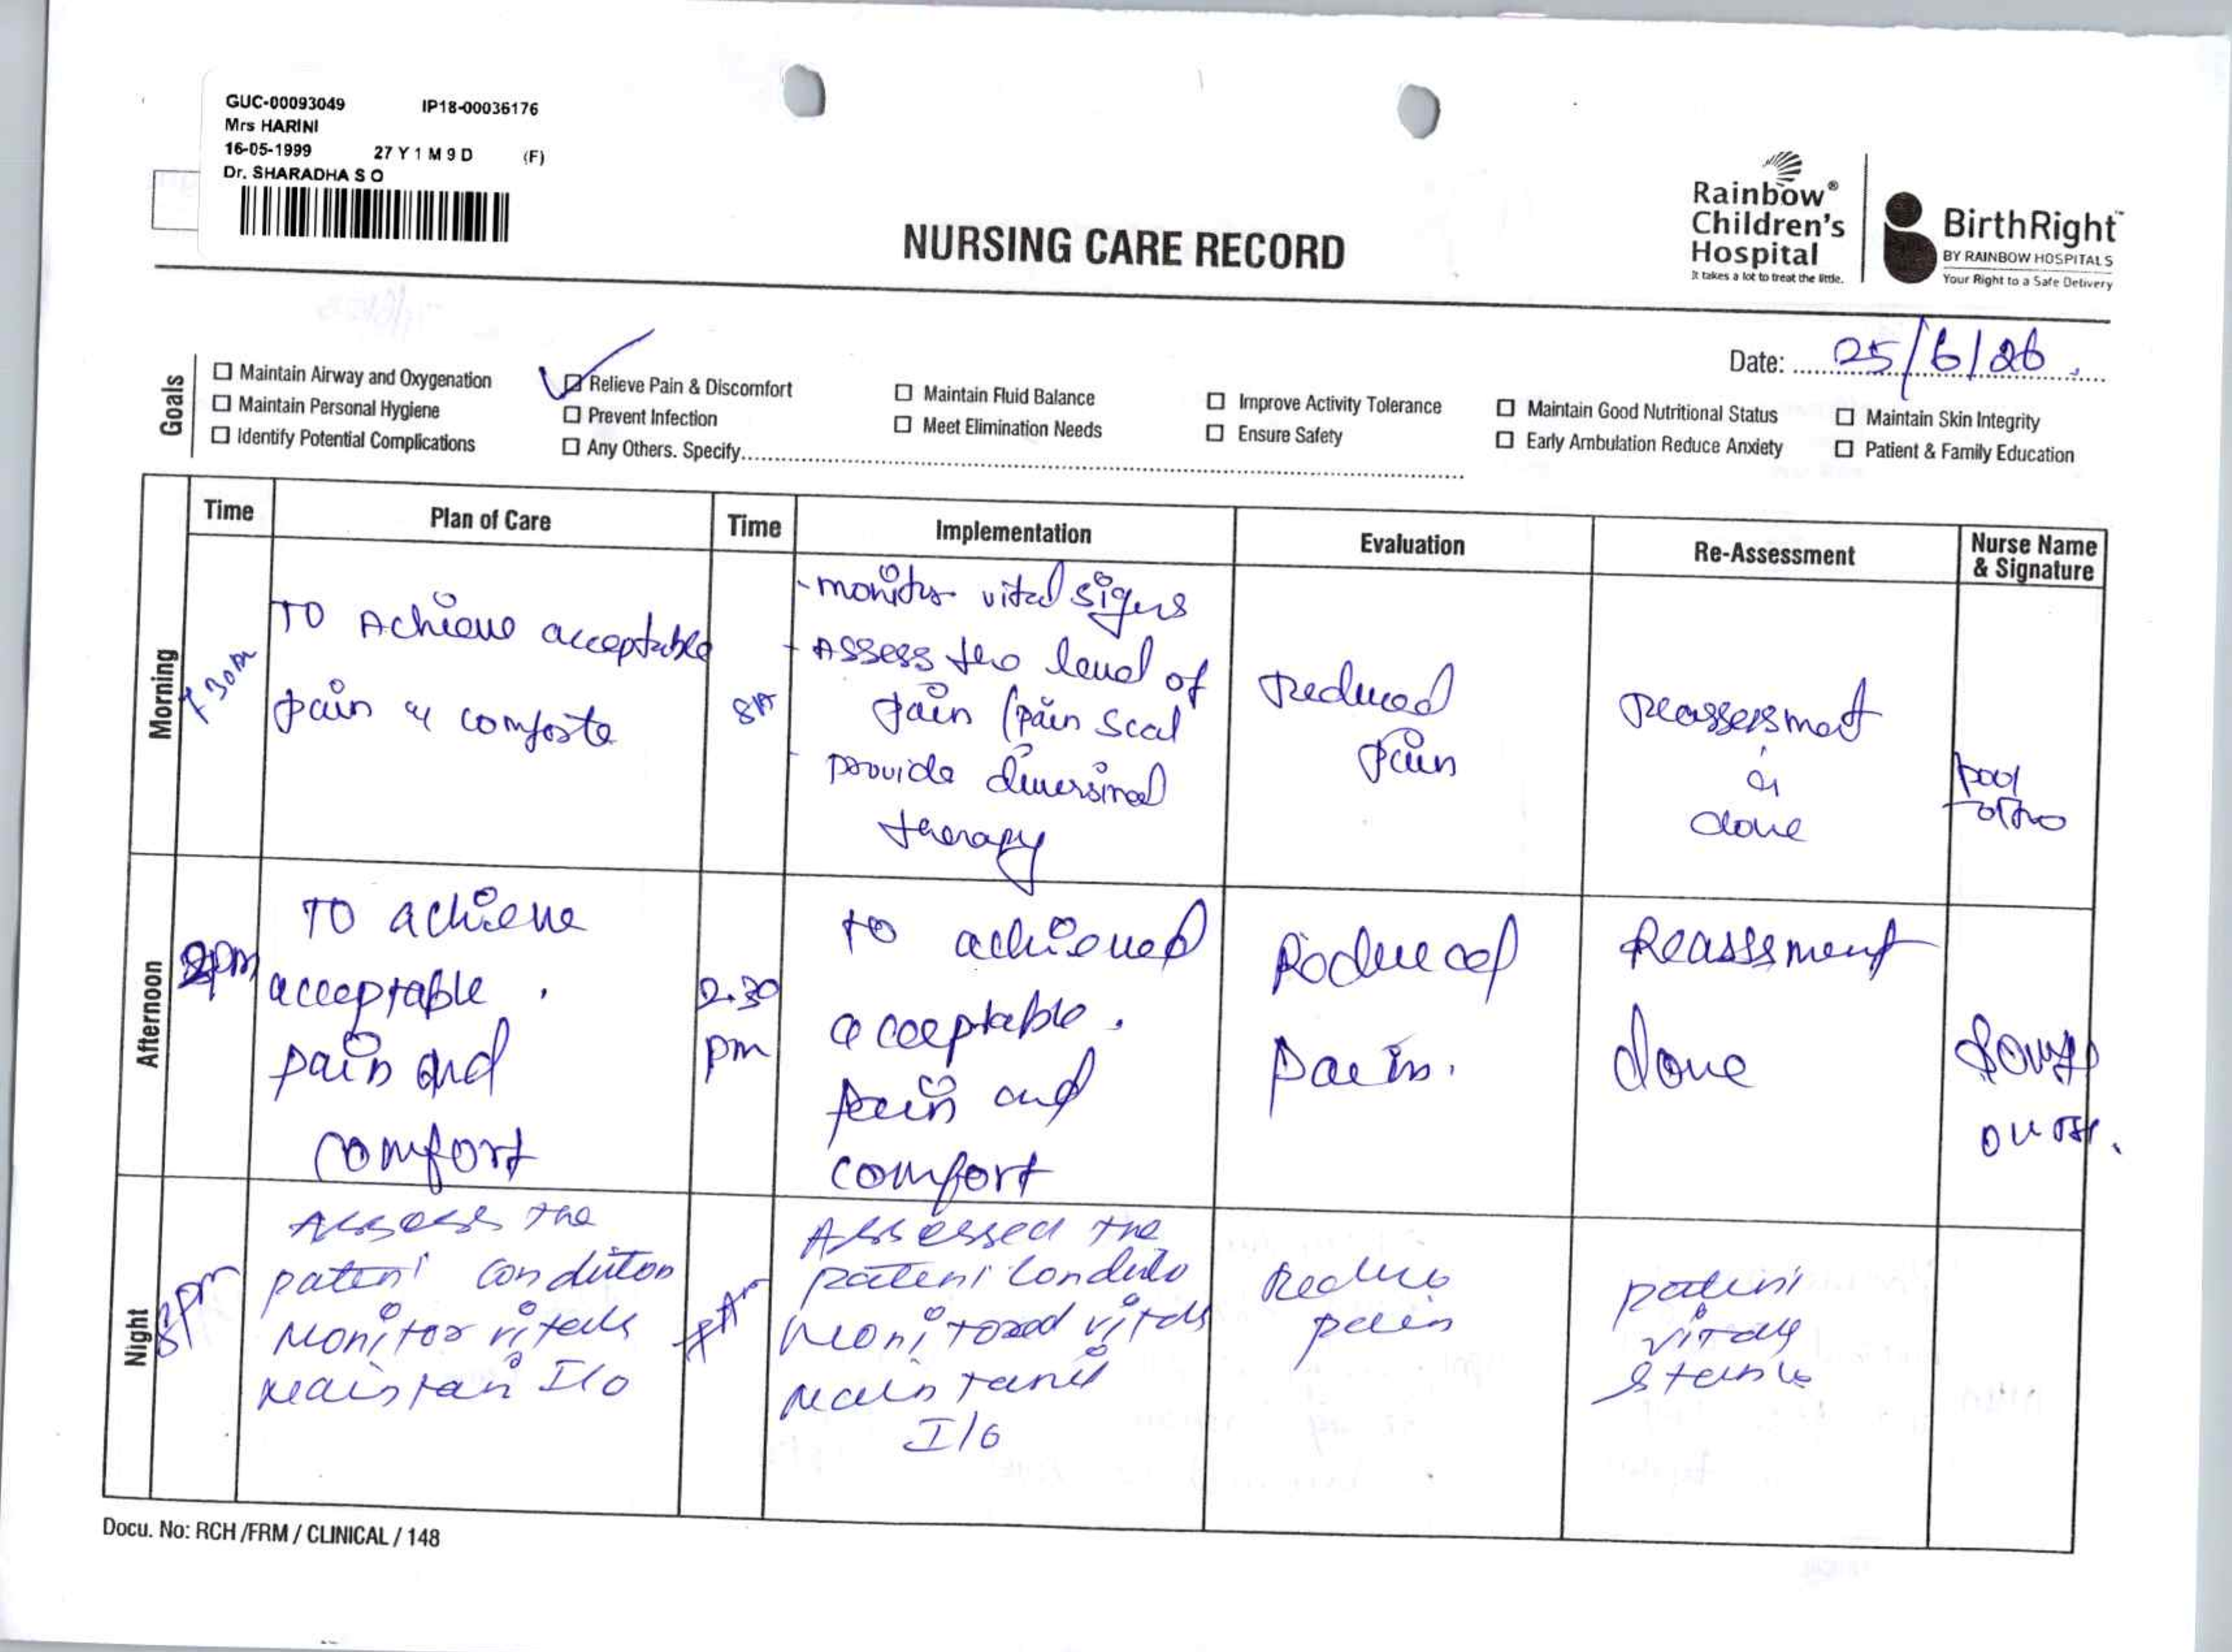 GUC-00093049 IP18-00036176
Mrs HARINI
16-05-1999 27 Y 1 M 9 D (F)
Dr. SHARADHA S O
Rainbow®
Children's
Hospital
It takes a lot to treat the little.
BirthRight™
BY RAINBOW HOSPITALS
Your Right to a Safe Delivery
NURSING CARE RECORD
Date: 25/6/26
Goals
Maintain Airway and Oxygenation
Maintain Personal Hygiene
Identify Potential Complications
Relieve Pain & Discomfort
Prevent Infection
Any Others. Specify
Maintain Fluid Balance
Meet Elimination Needs
Improve Activity Tolerance
Ensure Safety
Maintain Good Nutritional Status
Early Ambulation Reduce Anxiety
Maintain Skin Integrity
Patient & Family Education
Time Plan of Care Time Implementation Evaluation Re-Assessment Nurse Name & Signature
Morning
TO Achieve acceptable
pain comforte
- monitor vital signs
- Assess the level of
pain (pain scal
- provide
therapy
Reduced
pain
Reassessment
done
Afternoon
2pm
TO achieve
acceptable
pain and
comfort
2.30
pm
to achieved
acceptable.
pain and
comfort
Reduced
pain.
Reassment
done
Night
8pm
Assess the
patent condition
Monitor vitals
Maintain I/O
Assessed the
patent
Monitored vitals
I/O
Reduce
pain
patent
vitals
stable
Docu. No: RCH /FRM / CLINICAL / 148